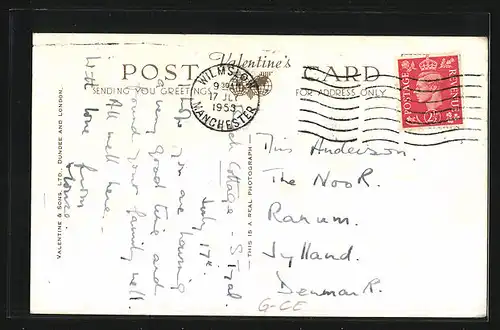 POST CARD
Valentine's
SENDING YOU GREETINGS
FOR ADDRESS ONLY
WILMSLOW
9 30 AM
17 JLY
1953
MANCHESTER
POSTAGE
REVENUE
2½
VALENTINE & SONS, LTD., DUNDEE AND LONDON.
THIS IS A REAL PHOTOGRAPH
Cottage - Styal.
July 17th.
Hope you are having
a very good time and
found your family well.
All well here.
With love from
Miss Anderson.
The Nook.
Ranum.
Jylland.
Denmark.
G-CE